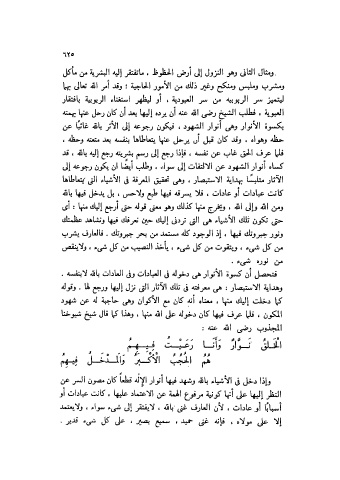 ٦٢٥
ومثال الثانى وهو النزول إلى أرض الحظوظ ، ماتفتقر إليه البشرية من مأكل
ومشرب وملبس ومنكح وغير ذلك من الأمور الحاجية : وقد أمر الله تعالى بها
ليتميز سر الربوبيه من سر العبودية ، أو ليظهر استغناء الربوبية بافتقار
العبودية ، فطلب الشيخ رضى الله عنه أن يرده إليها بعد أن كان رحل عنها بهمته
بكسوة الأنوار وهى أنوار الشهود ، فيكون رجوعه إلى الأثر بالله غائبًا عن
حظه وهواه ، وقد كان قبل أن يرحل عنها يتعاطاها بنفسه بعد متعته وحظه ،
فلما عرف الحق غاب عن نفسه ، فإذا رجع إلى رسم بشريته رجع إليه بالله ، قد
كساه أنوار الشهود عن الالتفات إلى سواه ، وطلب أيضًا أن يكون رجوعه إلى
الآثار ملتبسًا بهداية الاستبصار ، وهى تحقيق المعرفة فى الأشياء التى يتعاطاها
كانت عبادات أو عادات ، فلا يسرقه فيها طبع ولاحس ، بل يدخل فيها بالله
ومن الله وإلى الله ، ويخرج منها كذلك وهو معنى قوله حتى أرجع إليك منها : أى
حتى تكون تلك الأشياء هى التى تردنى إليك حين نعرفك فيها ونشاهد عظمتك
ونور جبروتك فيها ، إذ الوجود كله مستمد من بحر جبروتك . فالعارف يشرب
من كل شىء ، ويتقوت من كل شىء ، يأخذ النصيب من كل شىء ، ولاينقص
من نوره شىء .
فتحصل أن كسوة الأنوار هى دخوله فى العبادات وفى العادات بالله لابنفسه .
وهداية الاستبصار : هى معرفته فى تلك الآثار التى نزل إليها ورجع لها . وقوله
كما دخلت إليك منها ، معناه أنه كان مع الأكوان وهى حاجبة له عن شهود
المكون ، فلما عرف فيها كان دخوله على الله منها ، وهذا كما قال شيخ شيوخنا
المجذوب رضى الله عنه :
الْخَلْقُ نَوَّارٌ وَأَنَا رَعَيْتُ فِيهِمُ
هُمُ الْحُجُبُ الْأَكْبَرُ وَالْمَدْخَلُ فِيهِمُ
وإذا دخل فى الأشياء بالله وشهد فيها أنوار الإله قطعاً كان مصون السر عن
النظر إليها على أنها كونية مرفوع الهمة عن الاعتماد عليها ، كانت عبادات أو
أسبابًا أو عادات ، لأن العارف غنى بالله ، لايفتقر إلى شىء سواه ، ولايعتمد
إلا على مولاه ، فإنه غنى حميد ، سميع بصير ، على كل شىء قدير .